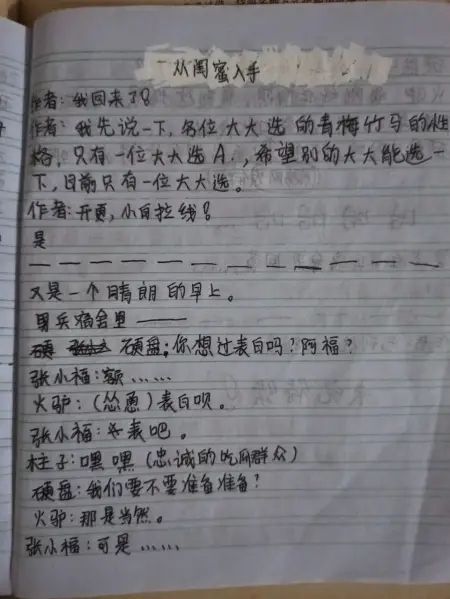 从闺蜜入手
作者:我回来了!
作者:我先说一下,各位大大选的青梅竹马的性
格,只有一位大大选A.,希望别的大大能选一
下,目前只有一位大大选。
作者:开更,小白拉线!
是
— — — — — — — — — — — —
又是一个晴朗的早上。
男兵宿舍里——
硬盘:你想过表白吗?阿福?
张小福:额……
火驴:(怂恿)表白呗。
张小福:不表吧。
柱子:嘿嘿(忠诚的吃瓜群众)
硬盘:我们要不要准备准备?
火驴:那是当然。
张小福:可是……